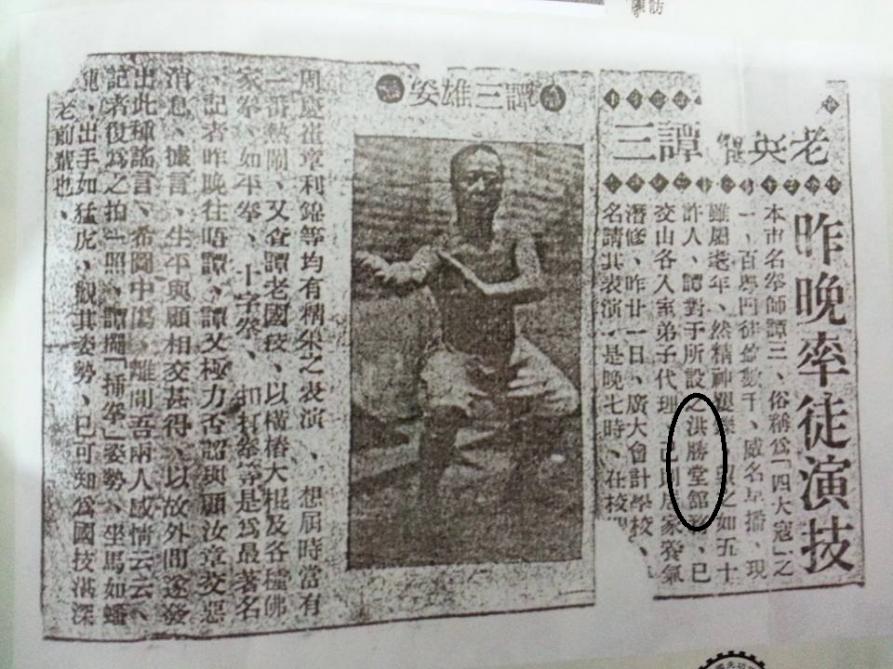 訪
老英雄譚三
昨晚率徒演技
本市名拳師譚三、俗稱爲「四大寇」之
一、百粵門徒數千、威名早播、現
雖屬老年、然精神矍、之如五十
許人、譚對于所設之洪勝堂館、已
交山各入室弟子代理、己則居家養氣
潛修、昨廿一日、廣大會計學校、
名請其表演、是晚七時、在校
譚三雄姿
周慶崔章利錦等均有精采之表演、想屆時當有
一番熱鬧、又查譚老國技、以橫樁大棍及各種佛
家拳、如平拳、十字拳、扣打拳等是爲最著名
、記者昨晚往晤譚、譚又極力否認與顧汝章交惡
消息、據言、生平與顧相交甚得、以故外間遂發
出此種謠言、希圖中傷、離間吾兩人感情云云、
記者復爲之拍一照、譚擺「插拳」姿勢、坐馬如蟠
龍、出手如猛虎、觀其姿勢、已可知爲國技湛深
老前輩也、